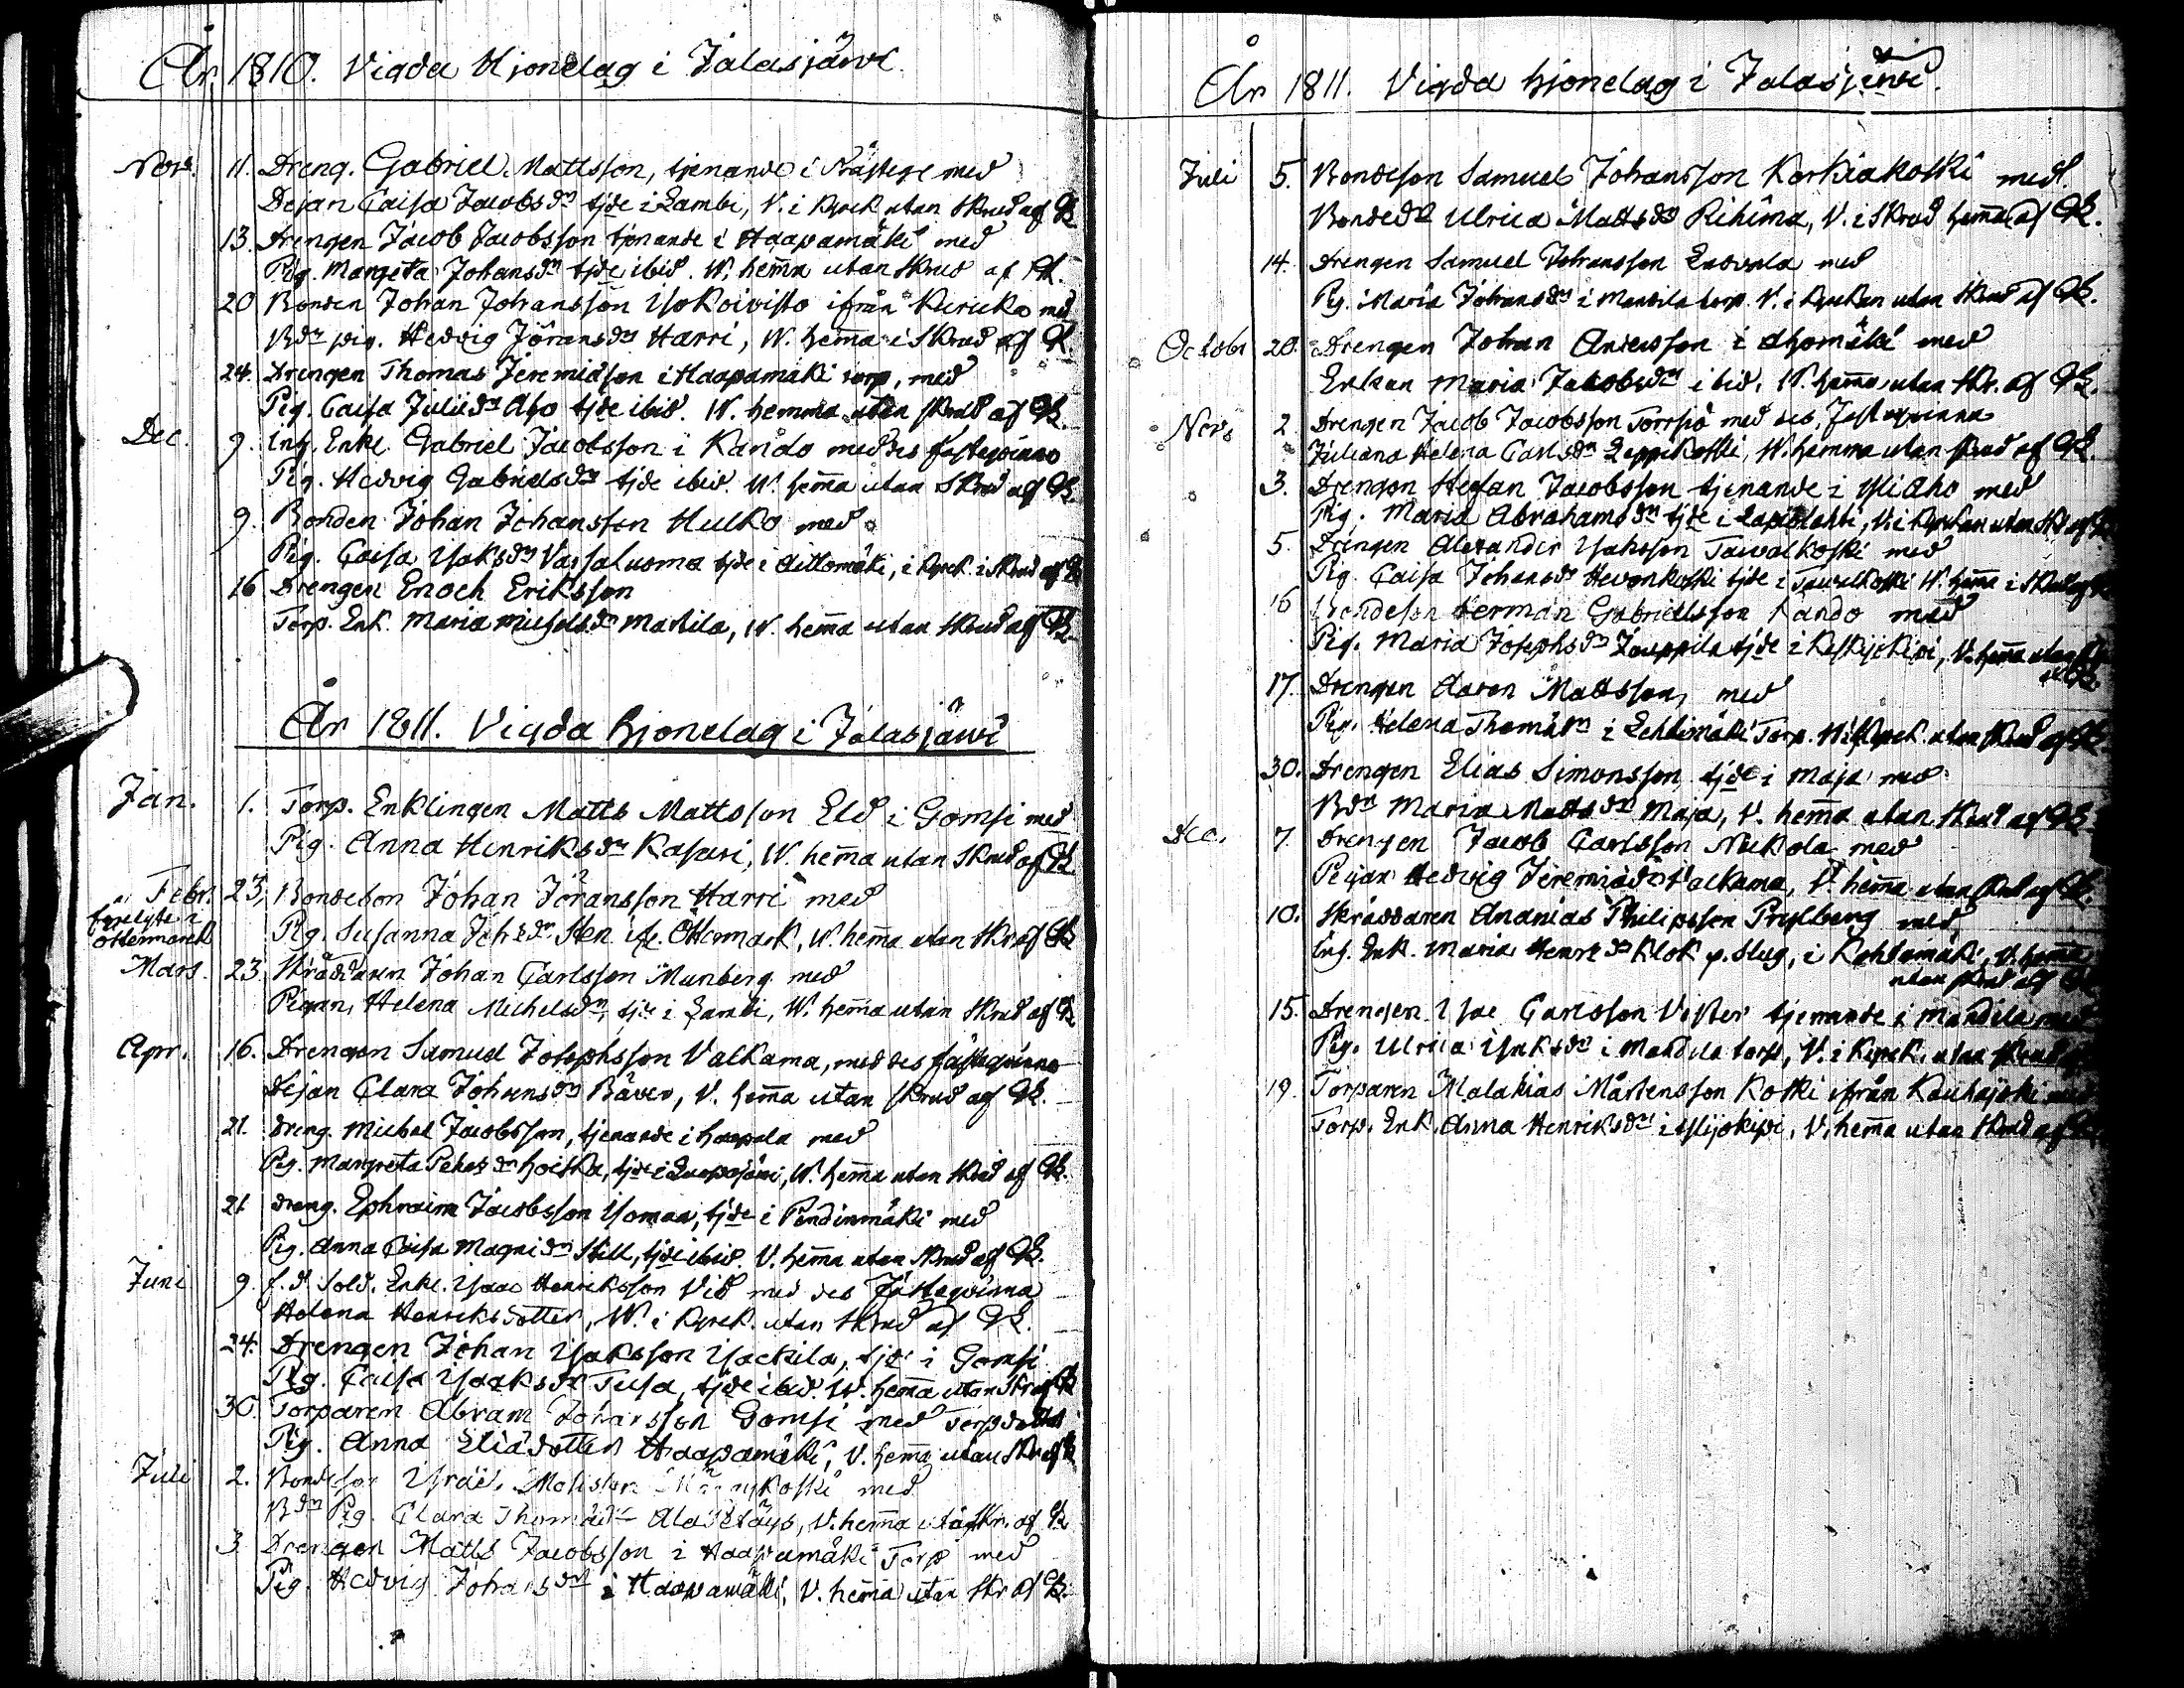 År 1810. Vigda Hjonelag i Jalasjärvi
Nov. 11. Dreng. Gabriel Mattsson, tjenande i Prästeg med
Pejan Caisa Jacobsdr tjde i Lambi, V. i Kyrck utan Skrud af
13. Drengen Jacob Jacobsson tjenande i Haapamäki med
Pig. Margeta Johansdr tjde ibid. W. hem̄a utan Skrud af
20 Bonden Johan Johansson Isokoivisto ifrån Kuricka med
Bdr pig. Hedvig Jöransdr Harri, W. hem̄a i Skrud af
24. Drengen Thomas Jeremiäson i Haapamäki torp, med
Pig. Caisa Juliidr Aho tjde ibid. W. hemma utan skrud af
Dec. 9. Inh. Enkl. Gabriel Jacobsson i Kando med des fästeqvinna
Pig. Hedvig Gabrielsdr tjde ibid. W. hem̄a utan Skrud af
9. Bonden Johan Johansson Hulko med
Pig. Caisa Isaksdr Vassaluoma tjde i Aittomäki, i Kyrck. i Skrud af
16 Drengen Enoch Eriksson
Torp. Enk. Maria Michelsdr Mattila, W. hem̄a utan Skrud af
År 1811. Vigda hjonelag i Jalasjärvi
Jan. 1. Torp. Enklingen Matts Mattsson Eld i Gomsi med
Pig. Anna Henriksdr Kasari, W. hem̄a utan Skrud af
Febr. 23, Bondeson Johan Jöransson Harri med
Pig. Susanna Johsdr Sten ifr. Öttermark, W. hem̄a utan Skr af
Mars. 23 Skräddaren Johan Carlsson Munberg med
Pigan, Helena Michelsdr, tjde i Lambi, W. hem̄a utan Skrud af
Apr. 16. Drengen Samuel Josephsson Valkama, med des fästeqvinna
Pejan Clara Johansdr Bäver, V. hem̄a utan skrud af
21. Dreng. Michel Jacobsson, tjenande i Haapala med
Pig. Margreta Petersdr Hoiska, tjde i Luopajärvi, W. hem̄a utan Skrud af
21 Dreng. Ephraim Jacobsson Isomaa, tjde i Pendinmäki med
Pig. Anna Caisa Magnidr Still, tjde ibid. V. hem̄a utan Skrud af
Juni 9. f.d. Sold. Enkl. Isaac Henriksson Vid med des Fästeqvinna
Helena Henriksdotter, W. i Kyrck. utan Skrud af
24. Drengen Johan Isaksson Isackila, tjde i Gomsi
Pig. Caisa Isaaksdr Tusa, tjde ibid. W. hem̄a utan Skr af
30. Torparen Abram Johansson Gomsi med Torpdottr
Pig. Anna Eliädotter Haapamäki, V. hem̄a utan Skr af
Juli 2. Bondeson Israel
Bdr Pig. Clara Thomädr Ala V. hem̄a utan Skr. af
3 Drengen Matts Jacobsson i Haapamäki Torp med
Pig. Hedvig Johansdr i Haapamäki, V. hem̄a utan Skr af
År 1811. Vigda hjonelag i Jalasjärvi.
Juli 5. Bondeson Samuel Johansson Korkiakoski med
Bondedr Ulrica Mattsdr Rihima, V. i Skrud hem̄a af
14. Drengen Samuel Johansson med
Pig. Maria Johansdr i Mandila torp. V. i Kyrckan utan Skrud af
Octobr 20. Drengen Johan Andersson i Ahomäki med
Enkan Maria Jakobsdr ibid. W. hem̄a utan Skr. af
Nov. 2 Drengen Jacob Jacobsson Torrsjö med des Festeqvinna
Juliana Helena Carlsdr Leppikoski, W. hemma utan skrud af
3. Drengen Stefan Jacobsson tjenande i Yliaho med
Pig. Maria Abrahamsdr tjde i V. i Kyrckan utan Skr af
5. Drengen Alexander Isaksson Tawalkoski med
Pig. Caisa Johansdr Hevonkoski tjde i Tawalkoski W. hem̄a i Skrud af
16 Bondeson Herman Gabrielsson Kando med
Pig. Maria Josephsdr Jouppila tjde i Keskijokipi, V. hem̄a utan
17. Drengen Aaron Mattsson, med
Pig. Helena Thomädr i Lehtimäki Torp. W. i Kyrck. utan Skrud af
30. Drengen Elias Simonsson, tjde i Maja med
Bdr Maria Mattsdr Maja, V. hem̄a utan Skrud af
Dec. 7. Drengen Jacob Carlsson Nickola med
Pejan Hedvig Jeremiädr Valkama, V. hem̄a utan Skrud af
10. Skräddaren Ananias Philipsson Prylberg med
Inh. Enk. Maria Henrsdr Klok i Kohtamäki, V. hem̄a
utan skrud af
15. Drengen Isac Carlsson Vester tjenande i Mandila med
Pig. Ulrica Isaksdr i Mandila torp, V. i Kyrck. utan Skrud
19. Torparen Malakias Mårtensson Koski ifrån Kauhajoki med
Torp. Enk. Anna Henriksdr i Ylijokipi, V. hem̄a utan Skrud af